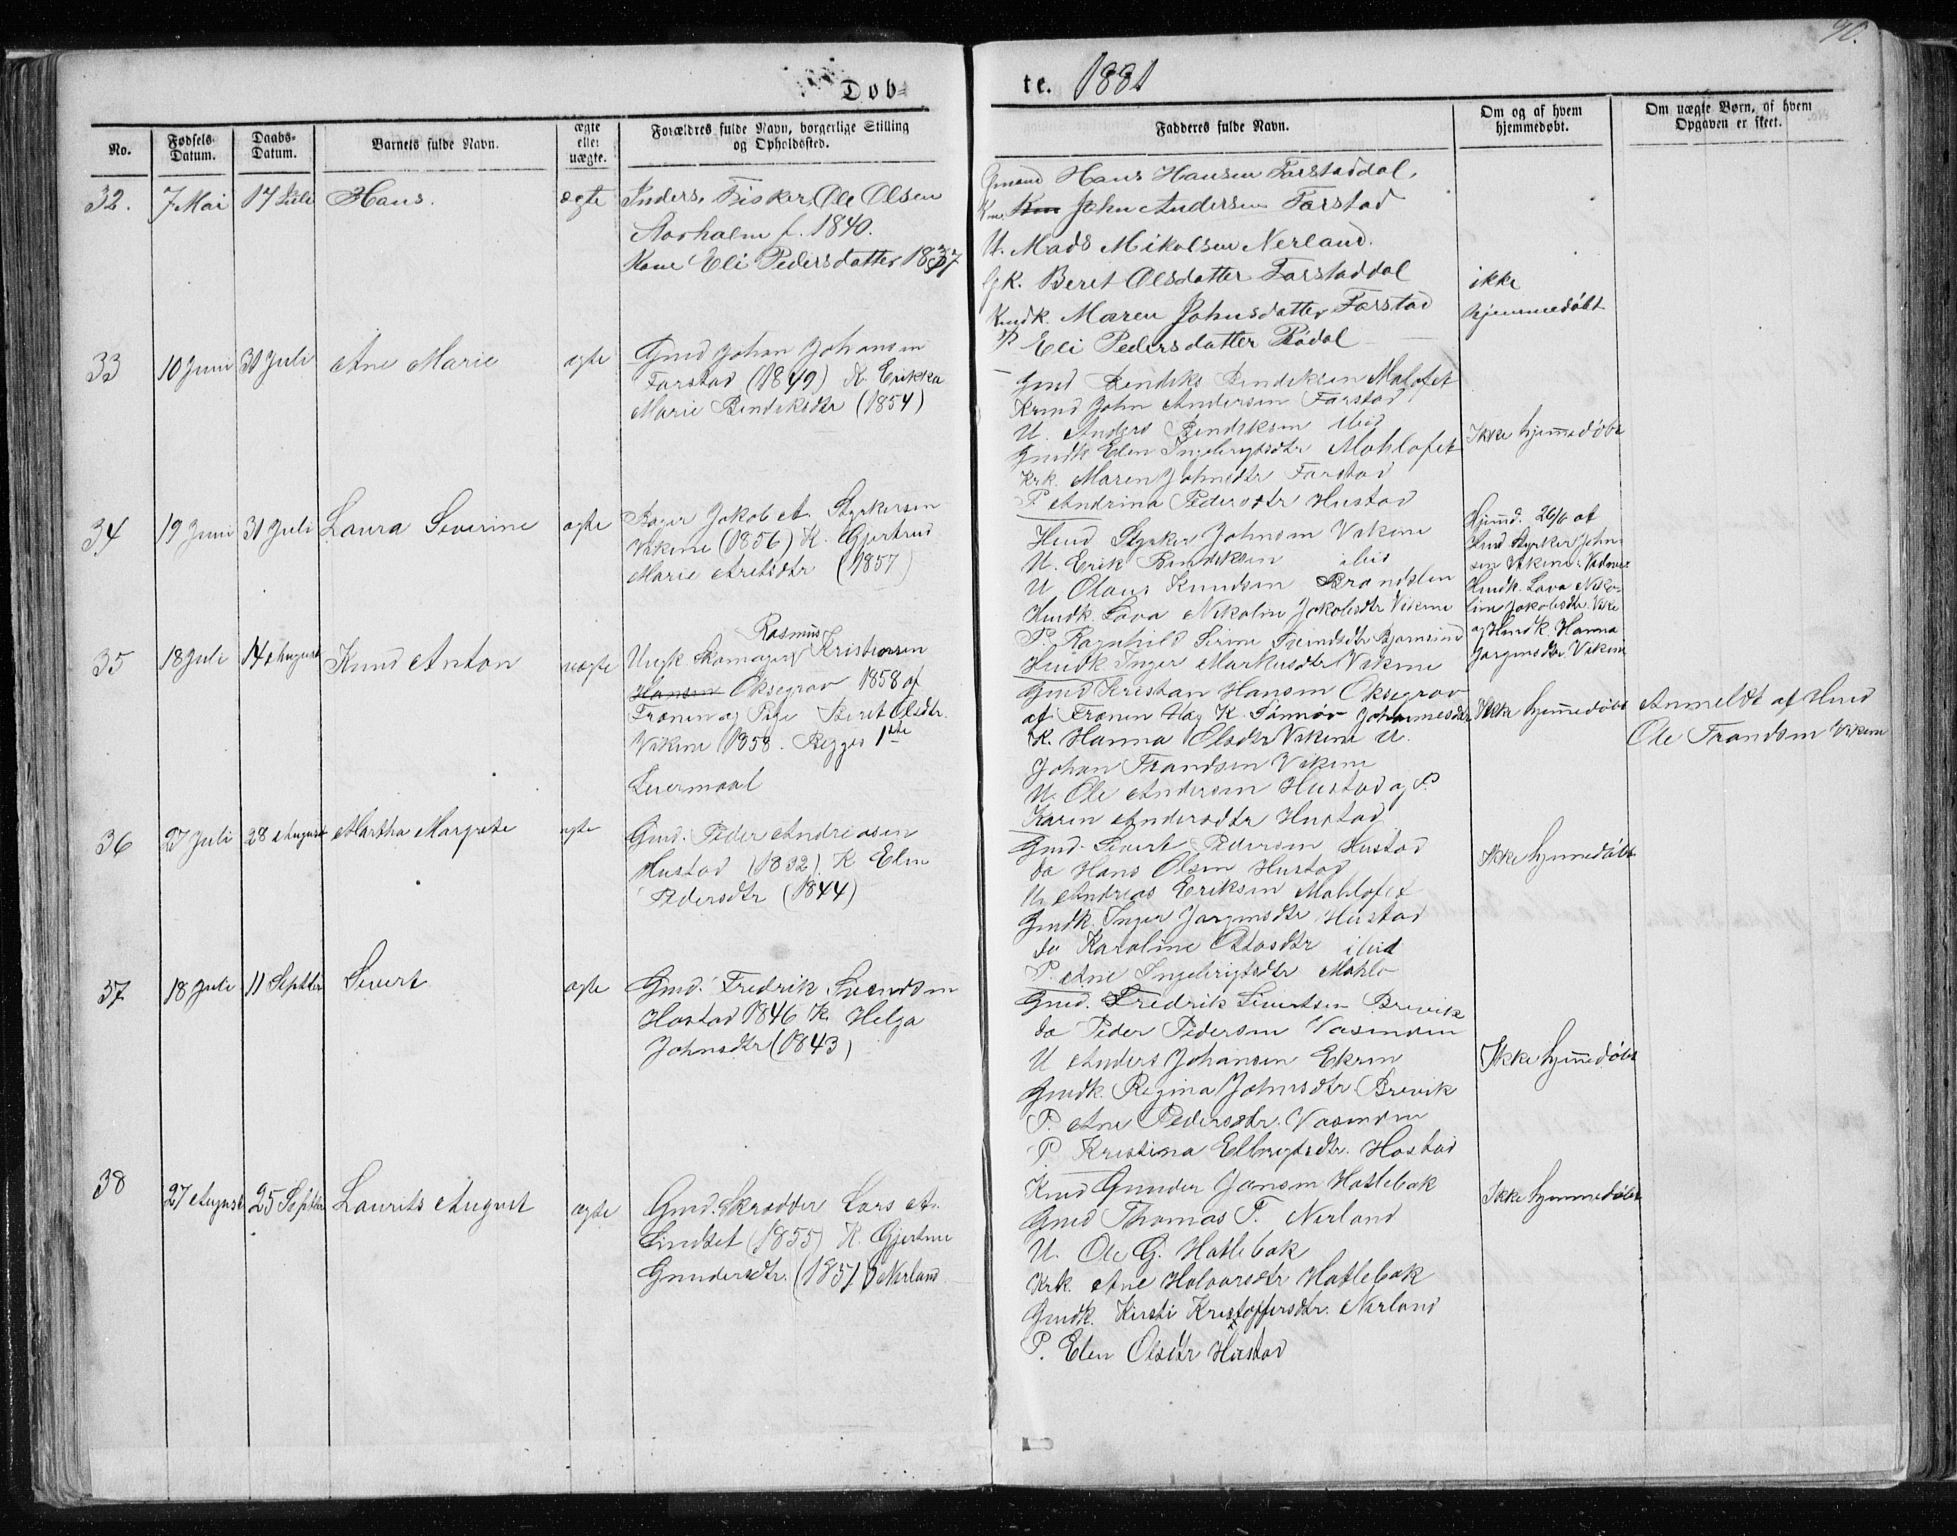 90.
Døb=
te. 1881
No.
Fødsels-
Datum.
Daabs-
Datum.
Barnets fulde Navn.
ægte
eller
uægte.
Forældres fulde Navn, borgerlige Stilling
og Opholdssted.
Fadderes fulde Navn.
Om og af hvem
hjemmedøbt.
Om uægte Børn, af hvem
Opgaven er skeet.
32. 7 Mai 17 Juli Hans. ægte
Inders. Fisker Ole Olsen
Aarholm f. 1840.
Kone Eli Pedersdatter 1837
Gmand Hans Hansen Farstaddal,
John Andersen Farstad
U. Mads Mikalsen Nerland.
Gk. Beret Olsdatter Farstaddal
Kmdk. Maren Johnsdatter Farstad
P Eli Pedersdatter Rødal
ikke
hjemmedøbt
33 10 Juni 31 Juli Ane Marie ægte
Gmd Johan Johansen
Farstad (1849) K. Erikka
Marie Bendiksdtr (1854)
Gmd Bendiks Bendiksen Malofet
Krmd John Andersen Farstad
U. Anders Bendiksen ibid
Gmdk Elen Ingebrigtsdtr Mohlofet
Krk. Maren Johnsdtr Farstad
P. Andrina Pedersdtr Hustad
Ikke hjemmedøbt
34 19 Juni 31 Juli Laura Severine ægte
Bager Jakob A. Styrkersen
Vikene (1856) K. Gjertrud
Marie Aretsdtr (1857)
Hmd Styrker Johnsen Vikene
U. Erik Bendiksen ibid
U Olaus Knudsen Brandslen
Hmdk. Lava Nikoline Jakobsdtr Vikene
P. Ragnhild Serine Trendsdtr Bjørnsund
Hmdk Inger Markusdtr Vikene
Hjemd. 26/6 af
Hmd Styrker John-
sen Vikene. Vidner
Hmdk. Lava Niko-
line Jakobsdtr. Vike
og Hmdk. Hanna
Jørgensdtr. Vikene
35 18 Juli 14 August Knud Anton uægte
Rasmus
Ungk Skomager Kristiansen
Hansen Oksegrav 1858 af
Frænen og Pige Beret Olsdtr.
Vikene 1858. Begges 1ste
Leiermaal
Gmd Kristian Hansen Oksegrav
af Frænen Hag K. Sønnøv Johannesdtr
K. Hanna Olsdtr Vikene U.
Johan Trandsen Vikene
U. Ole Andersen Hustad og P.
Karen Andersdtr Hustad
Ikke hjemmedøbt
Anmeldt af Hmd
Ole Trandsen Vikene
36 27 Juli 28 August Martha Margrete ægte
Gmd. Peder Andreasen
Hustad (1832). K Elen
Pedersdtr (1844)
Gmd. Sivert Pedersen Hustad
do Hans Olsen Hustad
U. Andreas Eriksen Mohlofet
Gmdk. Inger Jørgensdtr Hustad
do Karoline Olasdtr ibid
P. Ane Ingebrigtsdtr Mohlo
Ikke hjemmedøbt
37 18 Juli 11 Septber Sivert ægte
Gmd. Fredrik Svendsen
Hostad 1846 K. Helga
Johnsdtr (1843)
Gmd. Fredrik Sivertsen Brevik
do Peder Pedersen Vasenden
U Anders Johansen Ekren
Gmdk. Regina Johnsdtr Brevik
P. Ane Pedersdtr. Vasenden
P Kristina Elbrigtsdtr. Hostad
Ikke hjemmedøbt
38 27 August 25 Septber Laurits August ægte
Gmd. Skrædder Lars A.
Lindset (1855) K. Gjertine
Gundersdtr. (1851) Nerland
Kmd Gunder Jansen Hatlebak
Gmd Thomas T. Nerland
U. Ole G. Hatlebak
Krk. Ane Halvorsdtr Hatlebak
Gmdk. Kirsti Kristoffersdtr. Nerland
P. Elen Olsdtr Hustad
Ikke hjemmedøbt